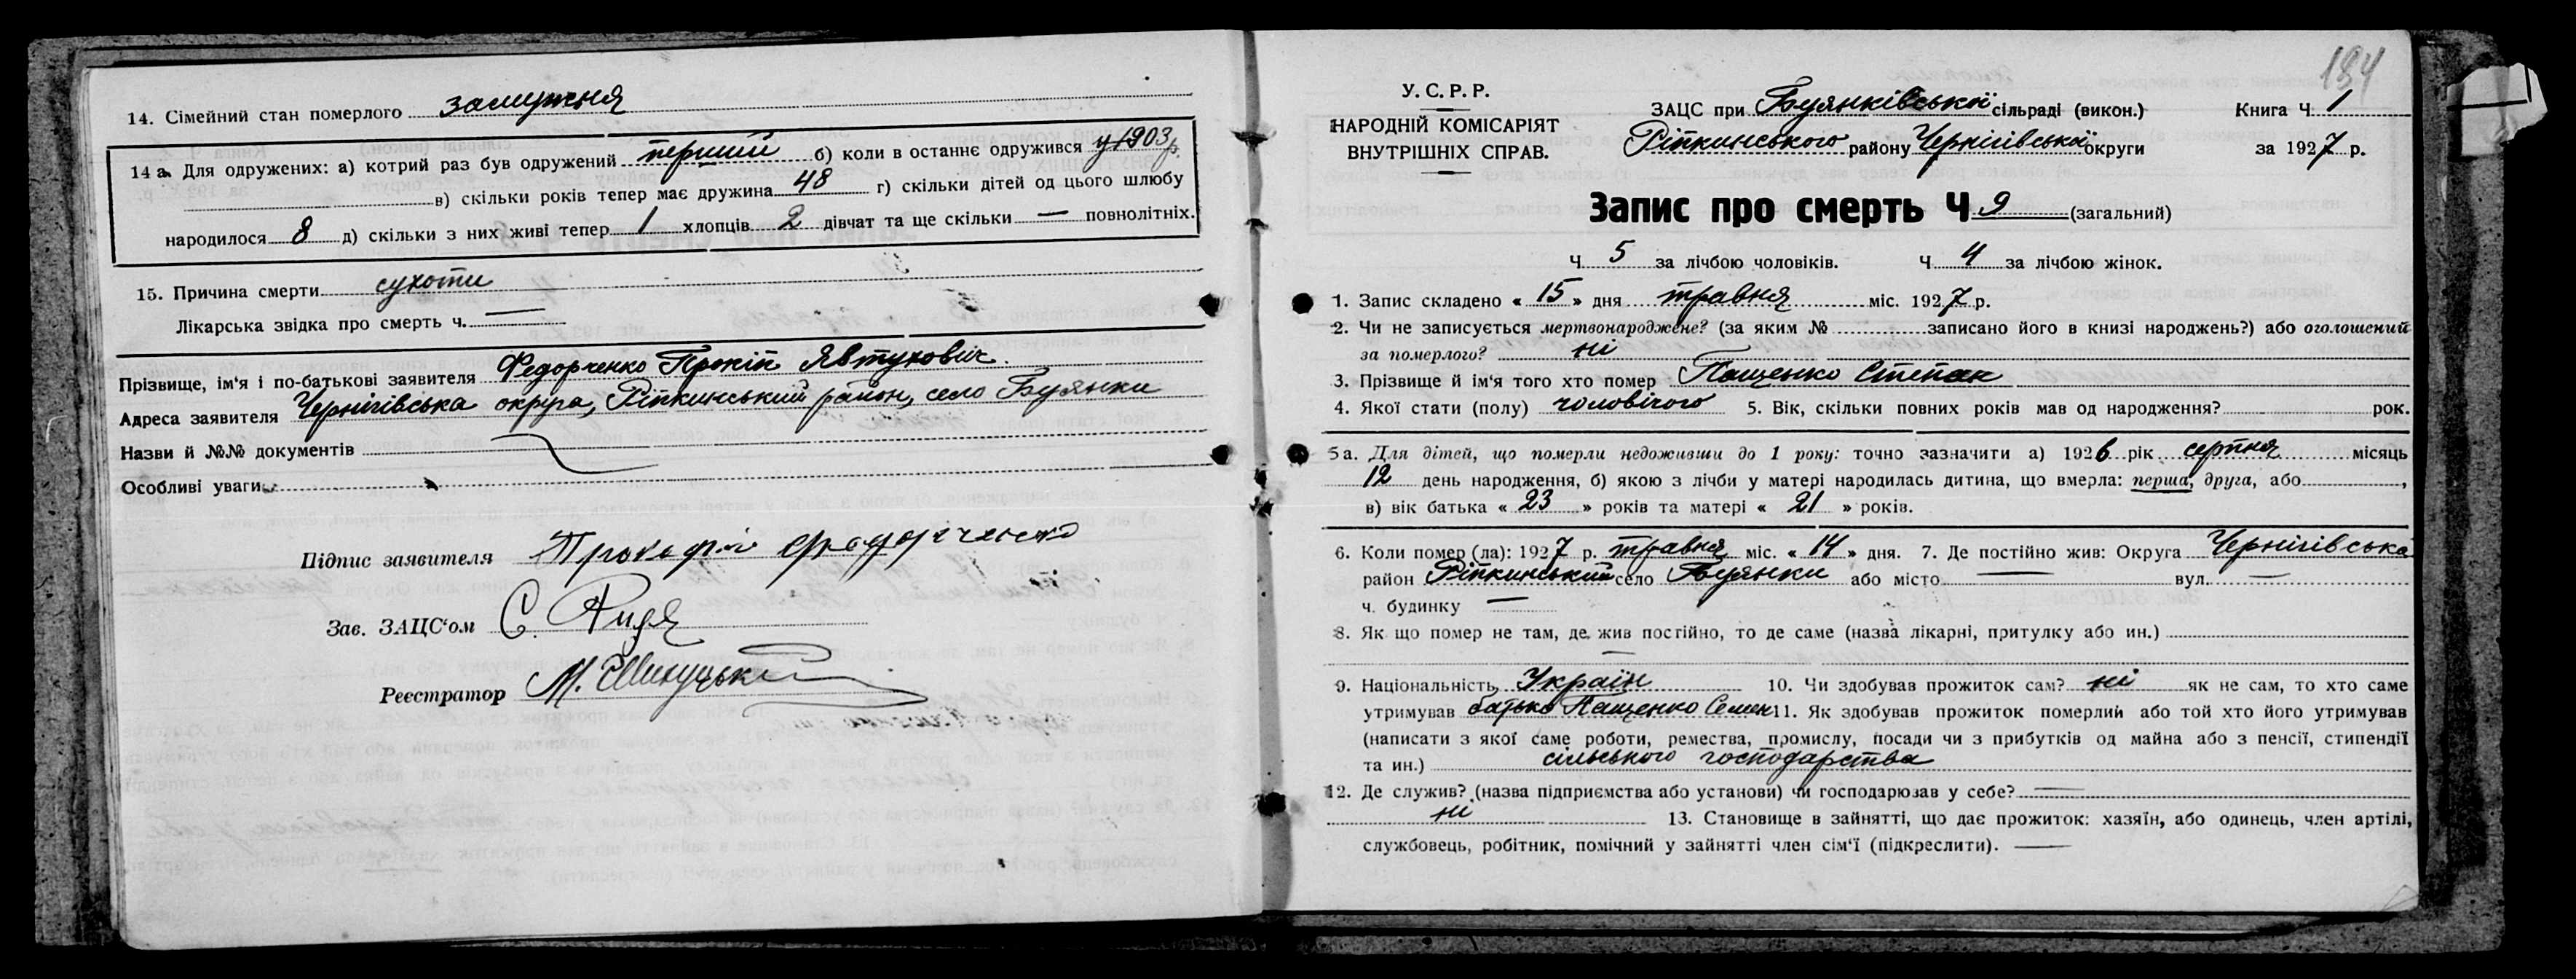 14. Сімейний стан померлого замужня
14 а. Для одружених: а) котрий раз був одружений перший б) коли в останнє одружився у 1903 р.
в) скільки років тепер має дружина 48 г) скільки дітей од цього шлюбу
народилося 8 д) скільки з них живі тепер 1 хлопців 2 дівчат та ще скільки — повнолітніх.
15. Причина смерти сухоти
Лікарська звідка про смерть ч. —
Прізвище, ім'я і по-батькові заявителя Федорченко Прокіп Явтухович.
Адреса заявителя Чернігівська округа, Ріпкинський район, село Буянки
Назви й №№ документів
Особливі уваги
Підпис заявителя Прокофій
Зав. ЗАЦС'ом С.
Реєстратор М.
184
У. С. Р. Р.
НАРОДНІЙ КОМІСАРІЯТ
ВНУТРІШНІХ СПРАВ.
ЗАЦС при Буянківської сільраді (викон.) Книга Ч 1
Ріпкинського району Чернігівської округи за 1927 р.
Запис про смерть Ч 9 (загальний)
Ч 5 за лічбою чоловіків. Ч 4 за лічбою жінок.
1. Запис складено « 15 » дня травня міс. 1927 р.
2. Чи не записується мертвонароджене? (за яким № записано його в книзі народжень?) або оголошений
за померлого? ні
3. Прізвище й ім'я того хто помер Пащенко Степан
4. Якої стати (полу) чоловічого 5. Вік, скільки повних років мав од народження? рок.
5а. Для дітей, що померли недоживши до 1 року: точно зазначити а) 1926 рік серпня місяць
12 день народження, б) якою з лічби у матері народилась дитина, що вмерла: перша, друга, або ,
в) вік батька « 23 » років та матері « 21 » років.
6. Коли помер (ла): 1927 р. травня міс. « 14 » дня. 7. Де постійно жив: Округа Чернігівська
район Ріпкинський село Буянки або місто — вул. —
ч. будинку —
8. Як що помер не там, де жив постійно, то де саме (назва лікарні, притулку або ин.)
—
9. Національність Україн 10. Чи здобував прожиток сам? ні як не сам, то хто саме
утримував батько Пащенко Семен 11. Як здобував прожиток померлий або той хто його утримував
(написати з якої саме роботи, ремества, промислу, посади чи з прибутків од майна або з пенсії, стипендії
та ин.) сільського господарства
12. Де служив? (назва підприємства або установи) чи господарював у себе? —
ні 13. Становище в зайнятті, що дає прожиток: хазяїн, або одинець, член артілі,
службовець, робітник, помічний у зайнятті член сім'ї (підкреслити). —